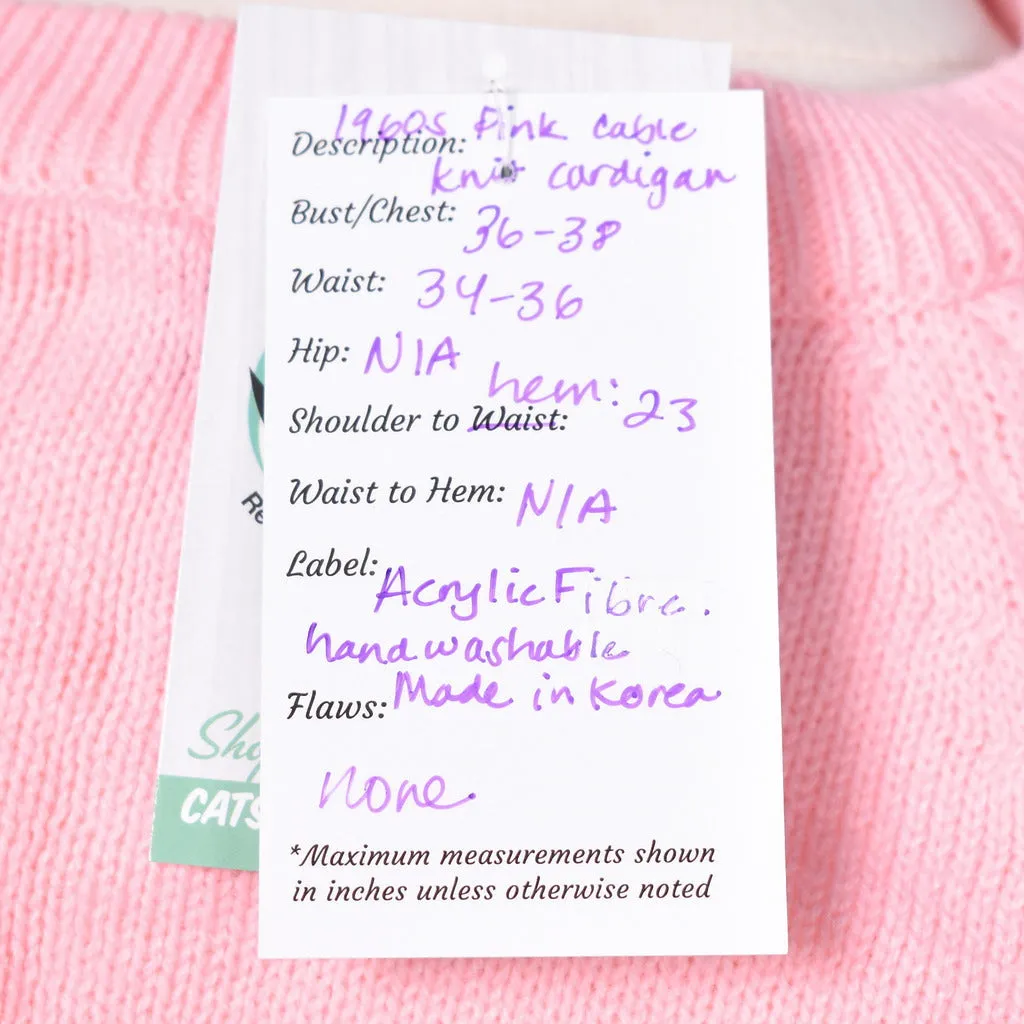 Description: 1960s Pink cable
knit cardigan
Bust/Chest: 36-38
Waist: 34-36
Hip: N/A
hem:
Shoulder to Waist: 23
Waist to Hem: N/A
Label: Acrylic Fibre.
handwashable
Made in Korea
Flaws:
none.
*Maximum measurements shown
in inches unless otherwise noted
CATS